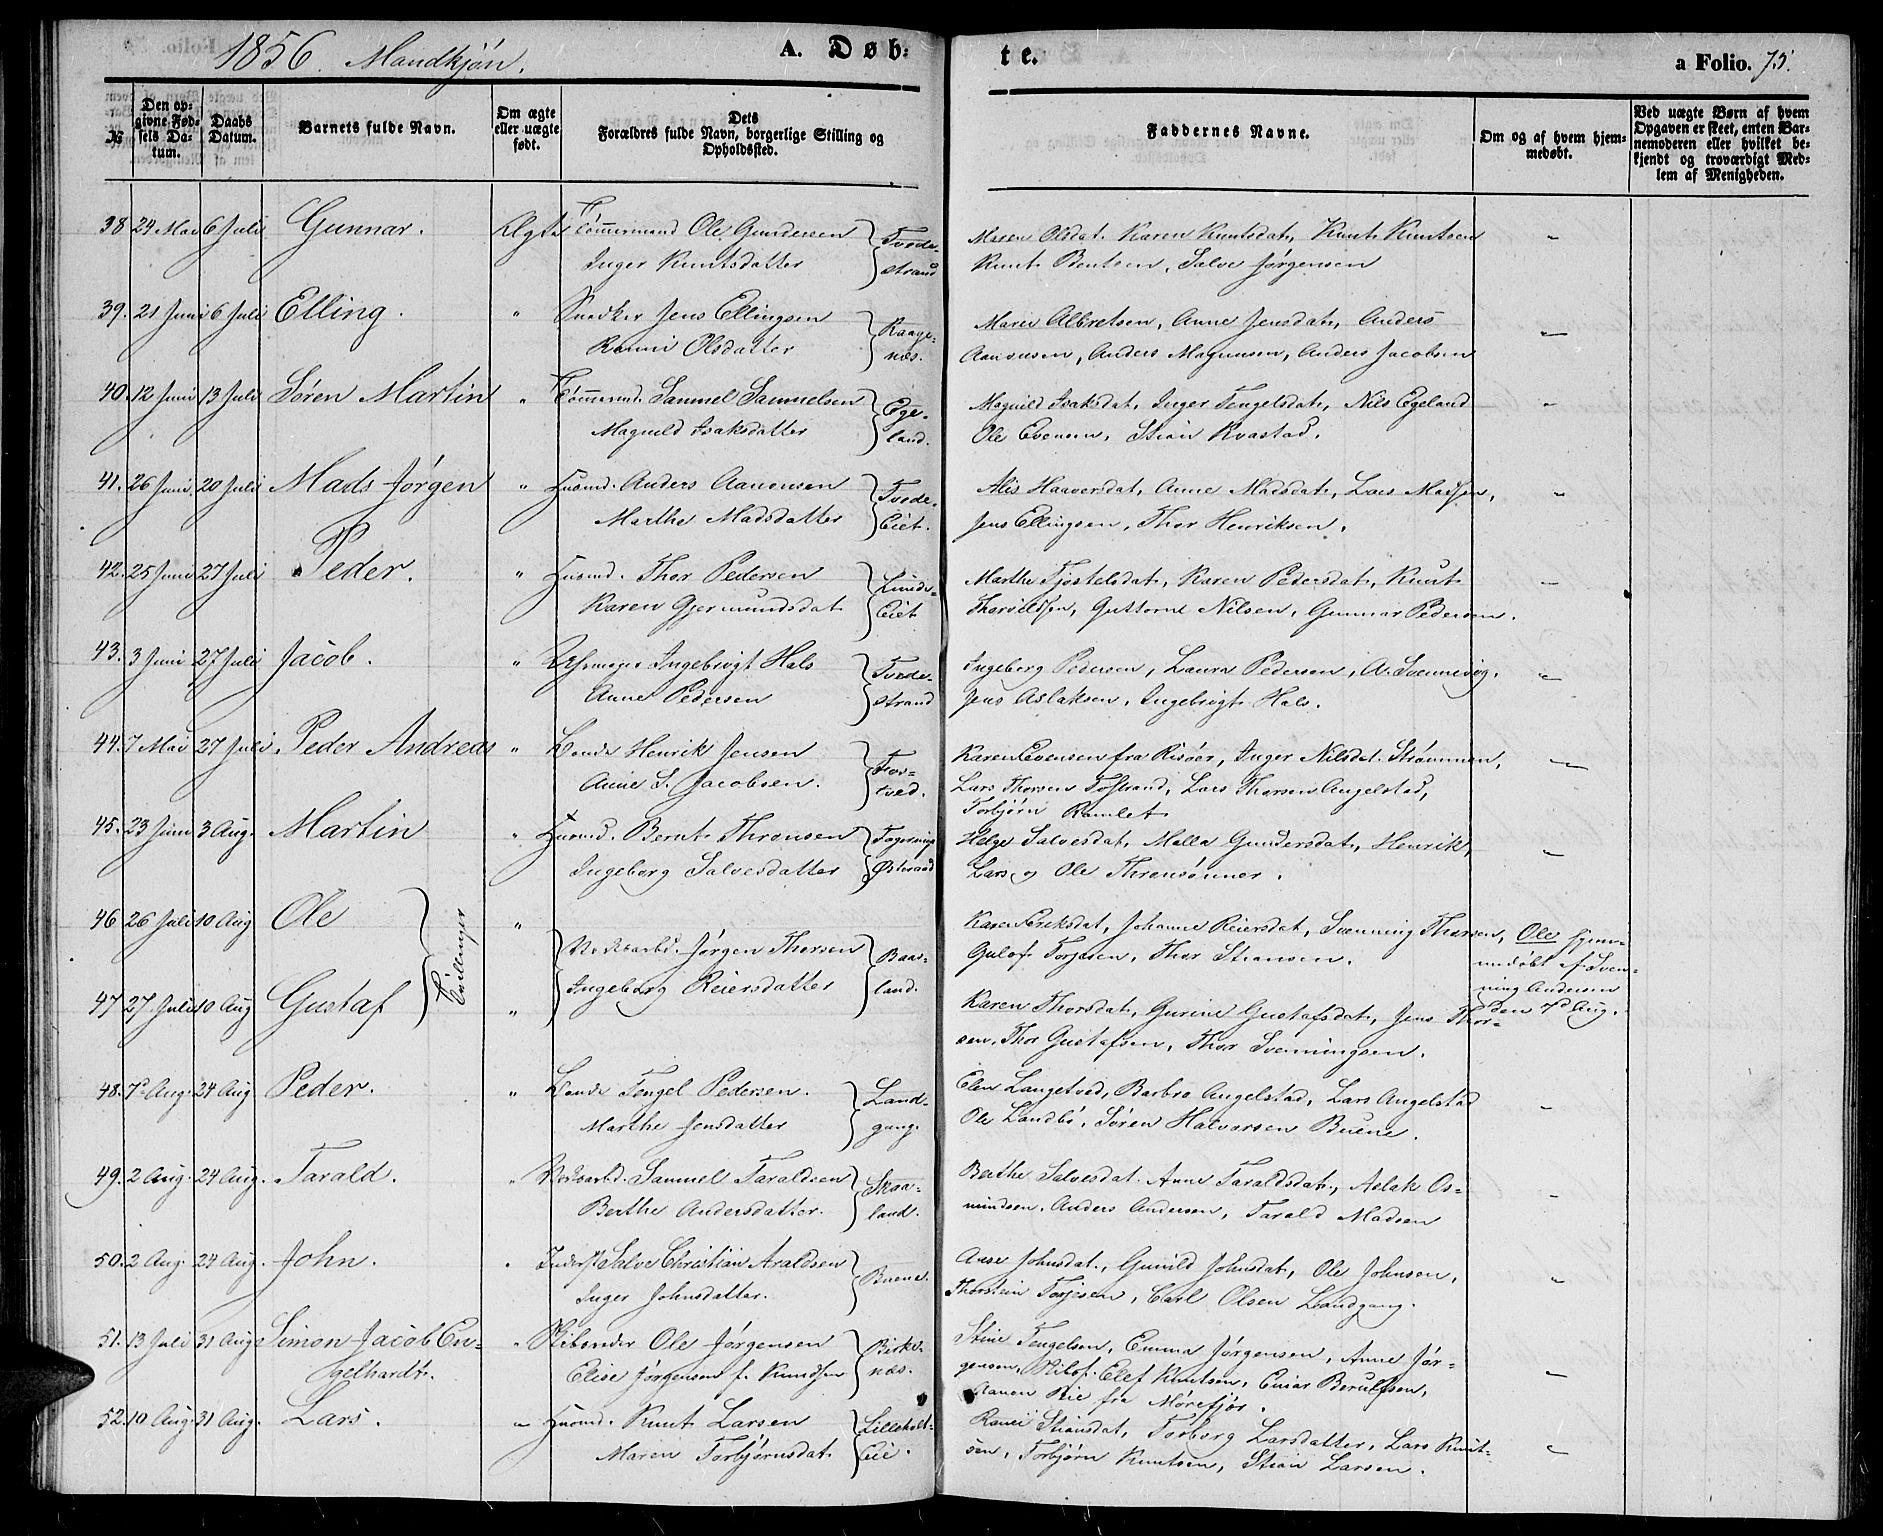 1856. Mandkjön.
A. Døb-
te.
a Folio. 75.
№
Den op-
givne Fød-
sels Da-
tum.
Daabs
Datum.
Barnets fulde Navn.
Om ægte
eller uægte
født.
Dets
Forældres fulde Navn, borgerlige Stilling og
Opholdssted.
Faddernes Navne.
Om og af hvem hjem-
medøbt.
Ved uægte Børn af hvem
Opgaven er skeet, enten Bar-
nemoderen eller hvilket be-
kjendt og troværdigt Med-
lem af Menigheden.
38 24 Mai 6 Juli Gunnar. Ægte Tömmermand Ole Gundersen Tvede-
Inger Knutsdatter strand
Maren Olsdat. Karen Knutsdat, Knut Knutsen
Knut Bentsen, Salve Jørgensen
39. 21 Juni 6 Juli Elling. " Snedker Jens Ellingsen Raage-
Ranni Olsdatter næs.
Maren Albretsen, Anne Jensdat, Anders
Aanonsen, Anders Magnusen, Anders Jacobsen
40. 12 Juni 13 Juli Søren Martin " Tömmermd. Samuel Samuelsen Ege-
Magnild Isaksdatter land.
Magnild Isaksdat, Inger Tengelsdat, Nils Egeland
Ole Evensen, Stian Kvastad.
41. 26 Juni 20 Juli Mads Jörgen " Husmd. Anders Aanonsen Tvede-
Marthe Madsdatter Eiet.
Alis Haaversdat, Anne Madsdat, Lars Madsen,
Jens Ellingsen, Thor Henriksen.
42. 25 Juni 27 Juli Peder. " Husmd. Thor Pedersen Lunde-
Karen Gjermundsdat Eiet
Marthe Fjøstelsdat, Karen Pedersdat, Knut
Thorvildsen, Guttorm Nilsen, Gunnar Pedersen.
43. 3 Juni 27 Juli Jacob. " Uhrmager Ingebrigt Hals Tvede-
Anne Pedersen strand
Ingeborg Pedersen, Laura Pedersen, A. Svennevig,
Jens Aslaksen, Ingebrigt Hals.
44. 7 Mai 27 Juli. Peder Andreas " Bonde Henrik Jensen
Anne S. Jacobsen. tved.
Karen Evensen fra Risöer, Inger Nilsdat. Strømmen,
Lars Thorsen Tofstrand, Lars Thorsen Angelstad,
Torbjørn Ramlet
45. 23 Juni 3 Aug. Martin " Husmd. Bernt Thronsen
Ingeborg Salvesdatter
Helge Salvesdat, Malla Gundersdat, Henrik,
Lars og Ole Thronsønner.
46 26 Juli 10 Aug. Ole "
Tvillinger
Værksarbd. Jørgen Thorsen Baas-
Ingeborg Reiersdatter land.
Karen Eriksdat, Johanne Reiersdat, Svenning Thorsen,
Gulof Torjesen, Thor Stiansen.
Ole hjem-
medöbt af Sven-
ning Andersen
den 7de Aug.
47 27 Juli 10 Aug Gustaf "
Karen Thorsdat, Gurine Gustafsdat, Jens Thor-
sen, Thor Gustafsen, Thor Svenningsen.
48. 7de Aug. 24 Aug. Peder. " Bonde Tengel Pedersen. Land-
Marthe Jensdatter gang.
Elen Langetved, Barbro Angelstad, Lars Angelstad
Ole Landbö, Søren Halvorsen Buene.
49. 2 Aug. 24 Aug. Tarald. " Værksarbd. Samuel Taraldsen Skaa-
Berthe Andersdatter. land.
Berthe Salvesdat. Anne Taraldsdat, Aslak Os-
mundsen, Anders Andersen, Tarald Madsen
50. 2 Aug. 24 Aug. John. " Inderst Salve Christian Araldsen Buene.
Inger Johnsdatter.
Anne Johnsdat., Gunild Johnsdat, Ole Johnsen,
Thorstein Torjesen, Carl Olsen Landgang.
51. 13 Juli 31 Aug Simon Jacob En-
gelhardt. " Skibsreder Ole Jørgensen Birke-
Elise Jørgensen f. Knudsen næs.
Stine Tengelsen, Emma Jørgensen, Anne Jør-
gensen, Elef Knutsen, Einar Berulfsen,
Aanon Rie fra Mørefjær.
52. 10 Aug. 31 Aug. Lars. " Husmd. Knut Larsen Lilleholt-
Maren Torbjørnsdat. Eie.
Ranei Stiansdat, Torborg Larsdatter, Lars Knut-
sen, Torbjørn Knutsen, Stian Larsen.